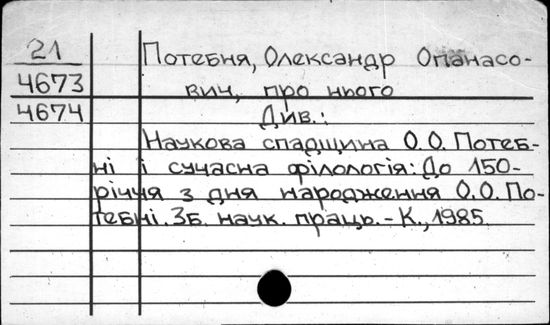 21
Потебня, Олександр Опанасо-
4673
вич, про нього
4674
Див.:
Наукова спадщина О.О. Потеб-
ні і сучасна філологія: До 150-
річчя з дня народження О.О. По-
тебні. Зб. наук. праць. - К., 1985